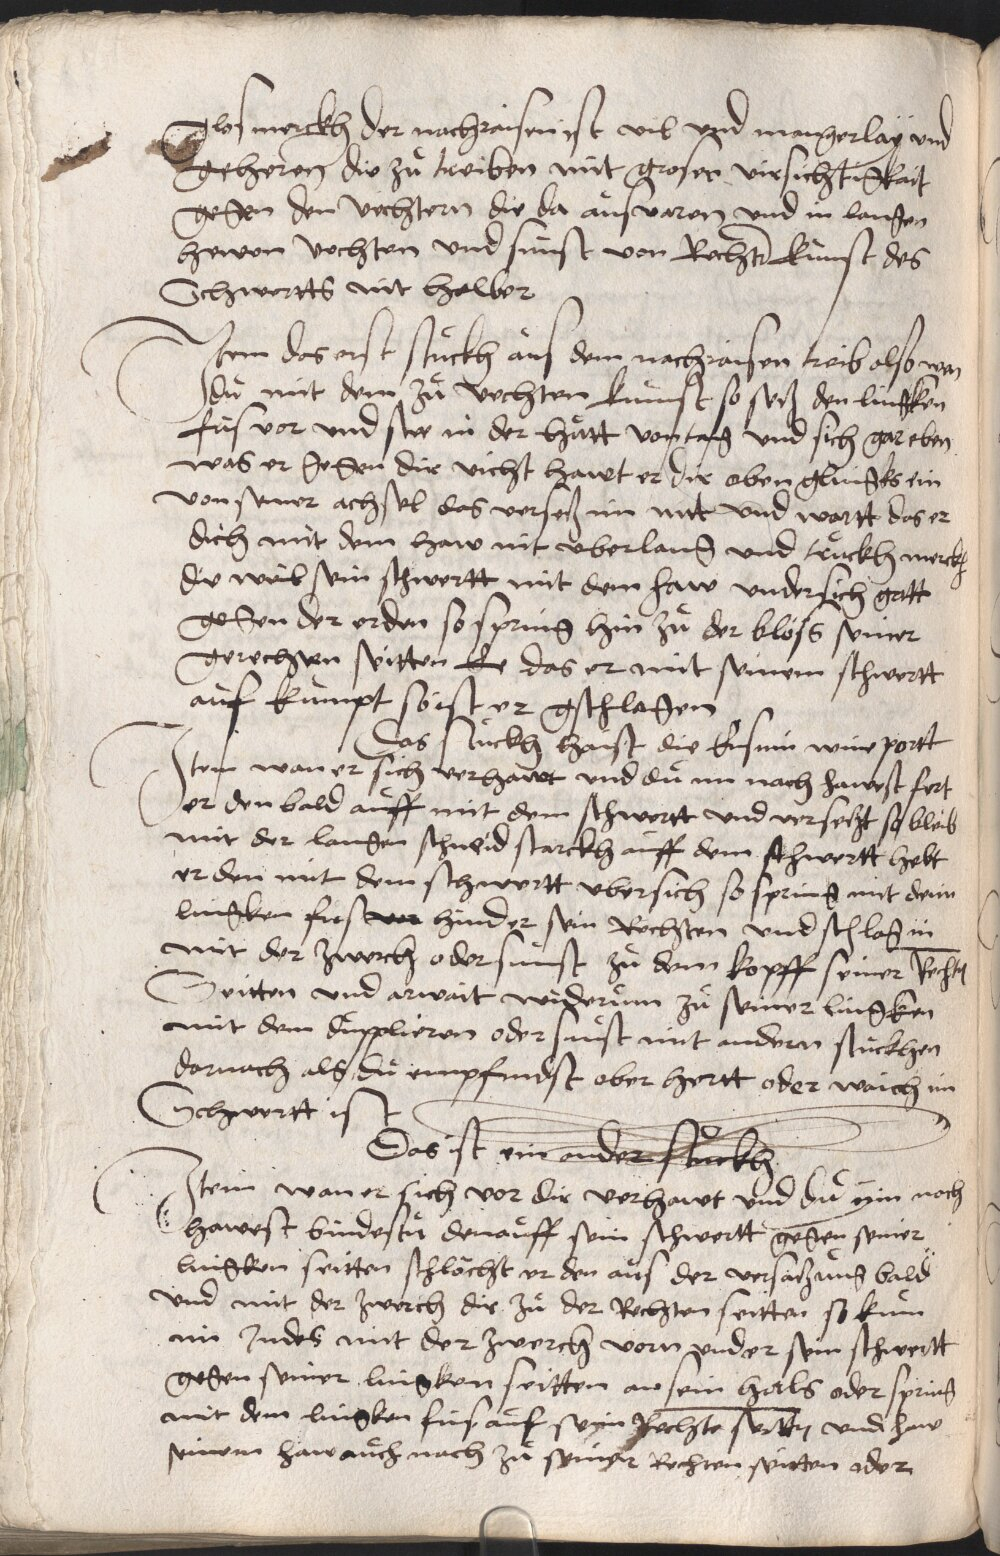 Glos merckh der nachraisen ist vil und mangerlaÿ und
geheren die zu treiben mit groser virsichtigkait
gegen den vechtern die da ausvaren und in langen
hewen vechten und sunst von Rechter kunst des
Schwertts nit halber
Item das erst stuckh aus dem nachraisen treib also wan
du mit dem zu vechten kumst so setz den lincken
fus vor und ste in der huett vom tag und sich gar eben
was er gegen dir vicht hawt er dir oben glangks ein
von seiner achsel das versetz im nitt und wartt das er
dich mit dem haw nit uberlang und truckh merckh
die weil sein schwertt mit dem haw undersich gatt
gegen der erden so spring hin zu der blöss seiner
gerechten seitten das er mit seinem schwertt
auf kumpt so ist er gschlagen
Das stuckh haist die eisnin wineportt
Item wan er sich verhawt und du im nach hawest fert
er den bald auff mit dem schwertt und versetzt so bleib
mit der langen schneid starckh auff dem schwertt hebt
er den mit dem schwertt ubersich so spring mit dem
lingken fus hinder sein Rechten und schlag in
mit der zwerch oder sunst zu dem kopff seiner Rechten
Seitten und arwait widerumm zu seiner lingken
mit dem dupplieren oder sunst mit andern stuckhen
darnach als du empfindst ober hertt oder waich im
Schwertt ist
Das ist ein ander stuckh
Item wan er sich vor dir verhawt und du ÿm noch
hawest bindestu denauff sein schwertt gegen seiner
lingken seitten schlächst er den aus der versatzung bald
und mit der zwerch dir zu der Rechten seitten so kum
im Indes mit der zwerch vorn under sein schwertt
gegen seiner lingken seitten an sein hals oder spring
mit dem lingken fus auf sein Rechte seitten und haw
seinem haw auch nach zu seiner Rechten seitten oder